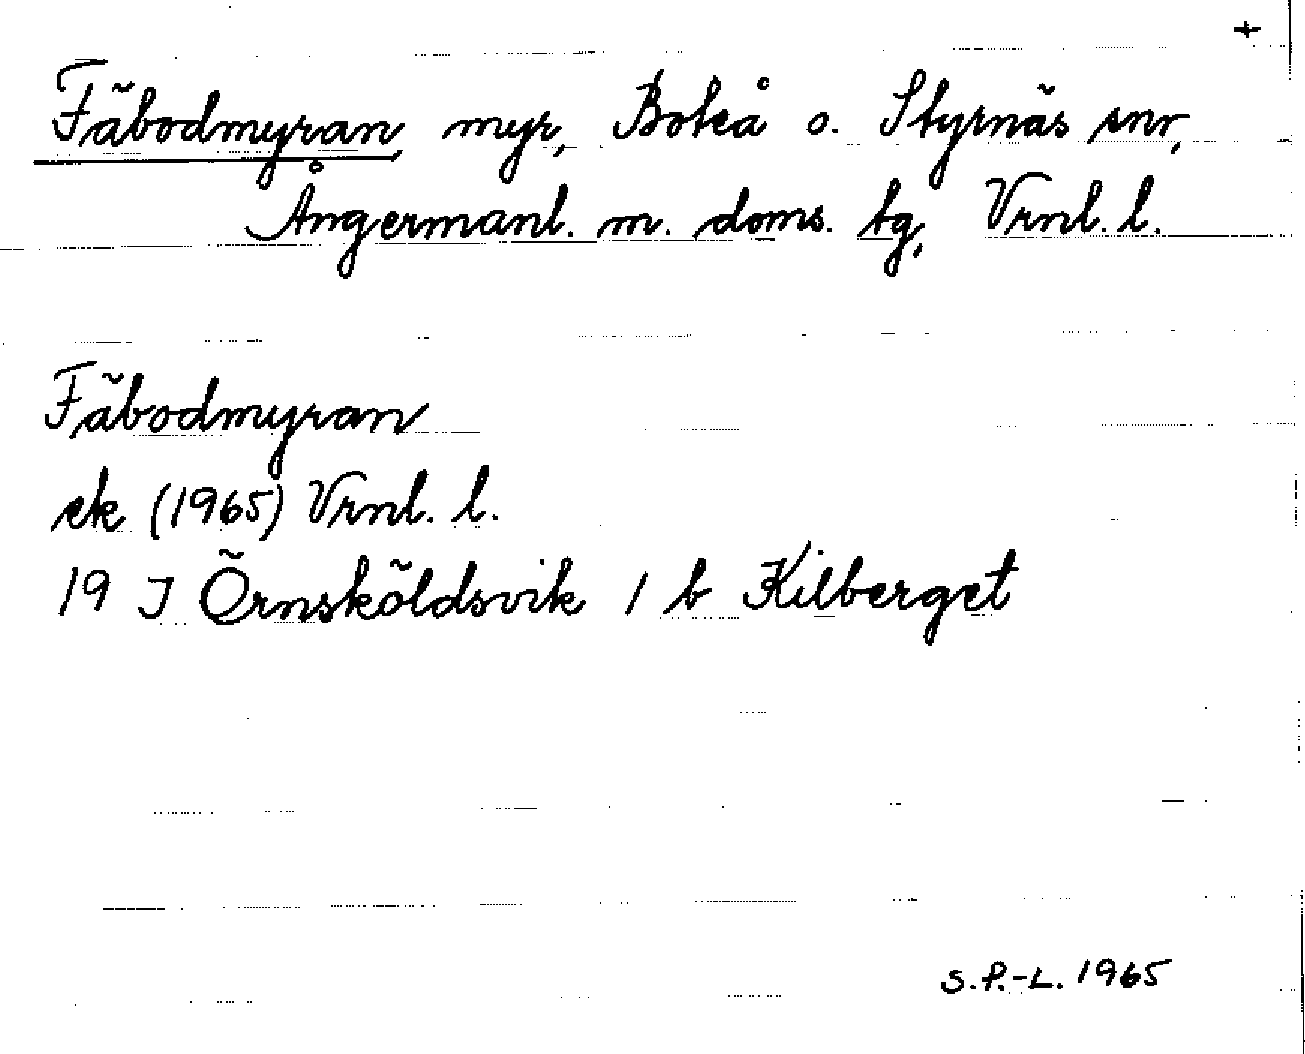 +
Fäbodmyran, myr, Boteå o. Styrnäs snr,
Ångermanl. m. doms. tg, Vrnl. l.
Fäbodmyran
ek (1965) Vrnl. l.
19 J Örnsköldsvik 1 b Kilberget
S.P.-L. 1965